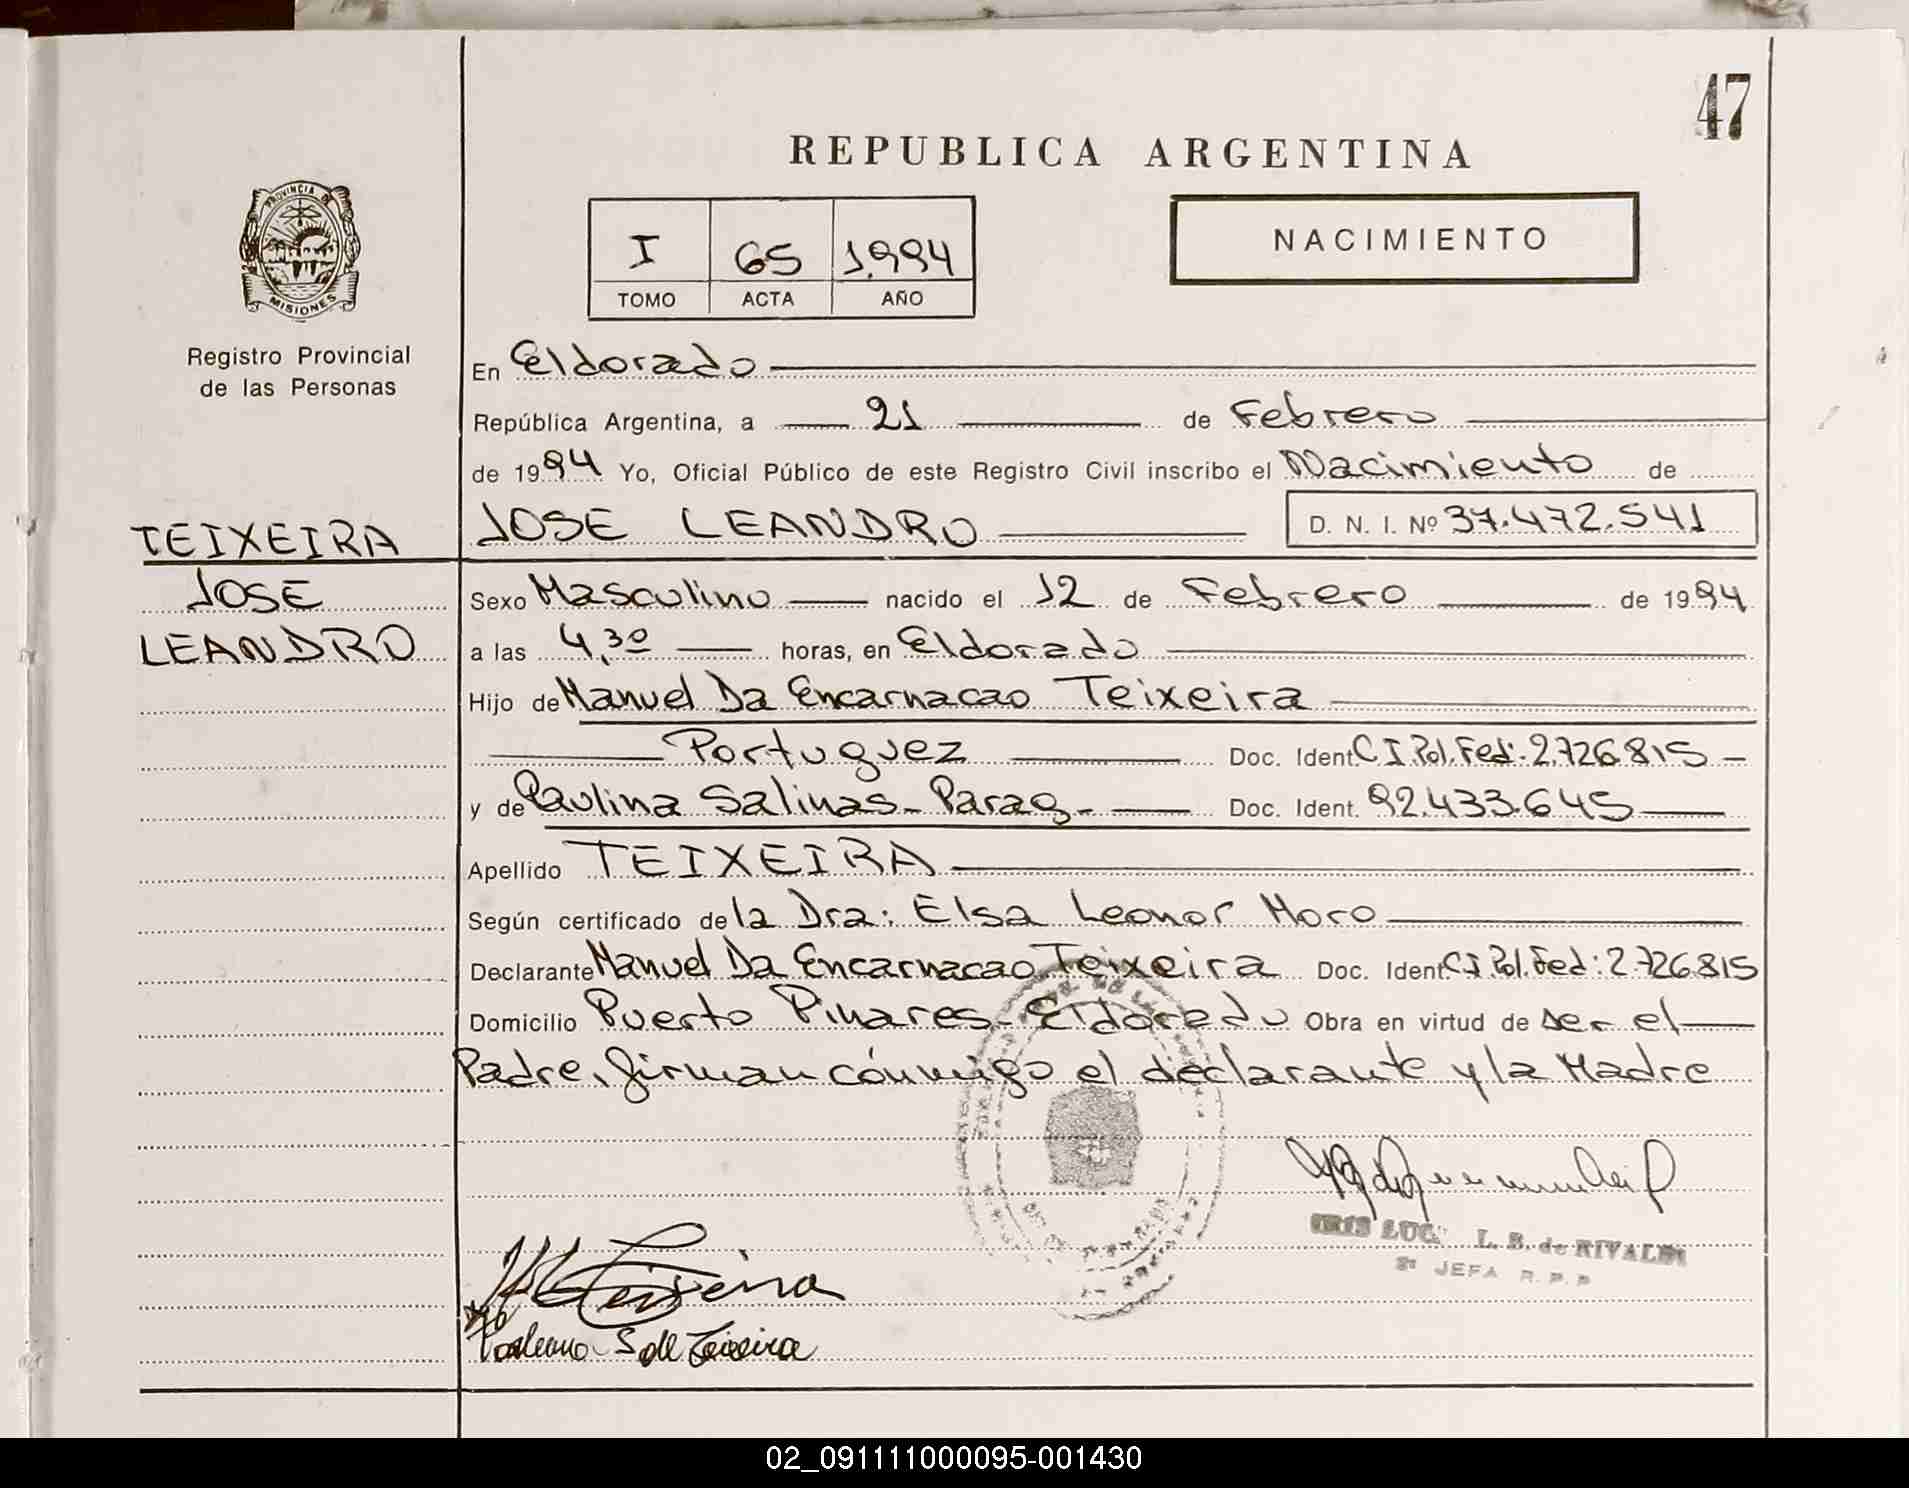 47
REPUBLICA ARGENTINA
PROVINCIA DE
MISIONES
I 65 1.994
TOMO ACTA AÑO
NACIMIENTO
Registro Provincial
de las Personas
En Eldorado
República Argentina, a 21 de Febrero
de 1994 Yo, Oficial Público de este Registro Civil inscribo el Nacimiento de
TEIXEIRA JOSE LEANDRO D. N. I. Nº 37.472.541
JOSE Sexo Masculino nacido el 12 de Febrero de 1994
LEANDRO a las 4,30 horas, en Eldorado
Hijo de Manuel Da Encarnacao Teixeira
Portuguez Doc. Ident C I. Pol. Fed: 2.726.815
y de Paulina Salinas - Parag - Doc. Ident. 92.433.645
Apellido TEIXEIRA
Según certificado de la Dra: Elsa Leonor Moro
Declarante Manuel Da Encarnacao Teixeira Doc. Ident C I Pol. Fed: 2.726.815
Domicilio Puerto Pinares - Eldorado Obra en virtud de ser el
Padre, firman conmigo el declarante y la Madre
L. B. de RIVALDI
2ª JEFA R. P. P
Teixeira
S de Teixeira
02_091111000095-001430